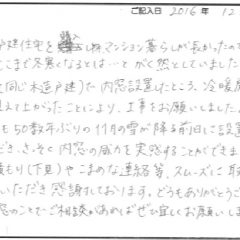 ご記入日 2016年 12
戸建住宅を 購入しましたが マンション暮らしが長かったので
ここまで冬寒くなるとは…と がく然としていました
同じ木造戸建)で 内窓設置したところ、冷暖房
上がったことにより、工事をお願いしました。
も50数年ぶりの11月の雪が降る前日に設置
だき、さっそく内窓の威力を実感することができま
積もり(下見)や こまめな連絡等、スムーズに
いただき 感謝しております。どうもありがとうご
窓のことでご相談があればぜひ宜しくお願いしま